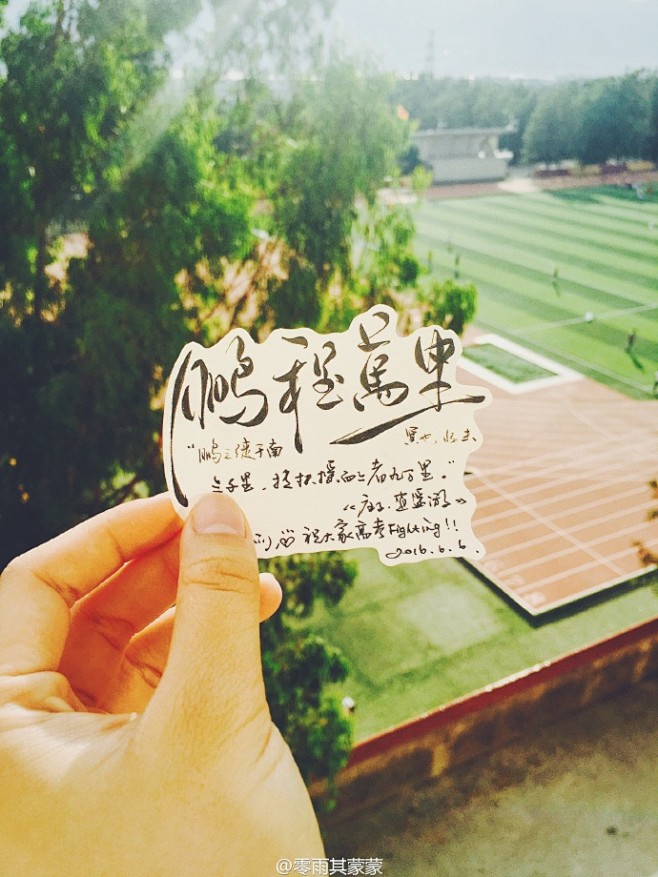 鹏程萬里
“鹏之徙于南冥也,水击
三千里,抟扶摇而上者九万里。”
《庄子·逍遥游》
祝大家高考Fighting!!
2016.6.6.
@零雨其蒙蒙